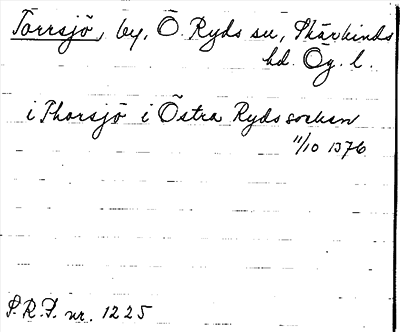 Torrsjö, by, Ö. Ryds sn, Skärkinds
hd. Ög. l.
i Thorsjö i Östra Ryds socken
11/10 1376
S.R.P. nr. 1225